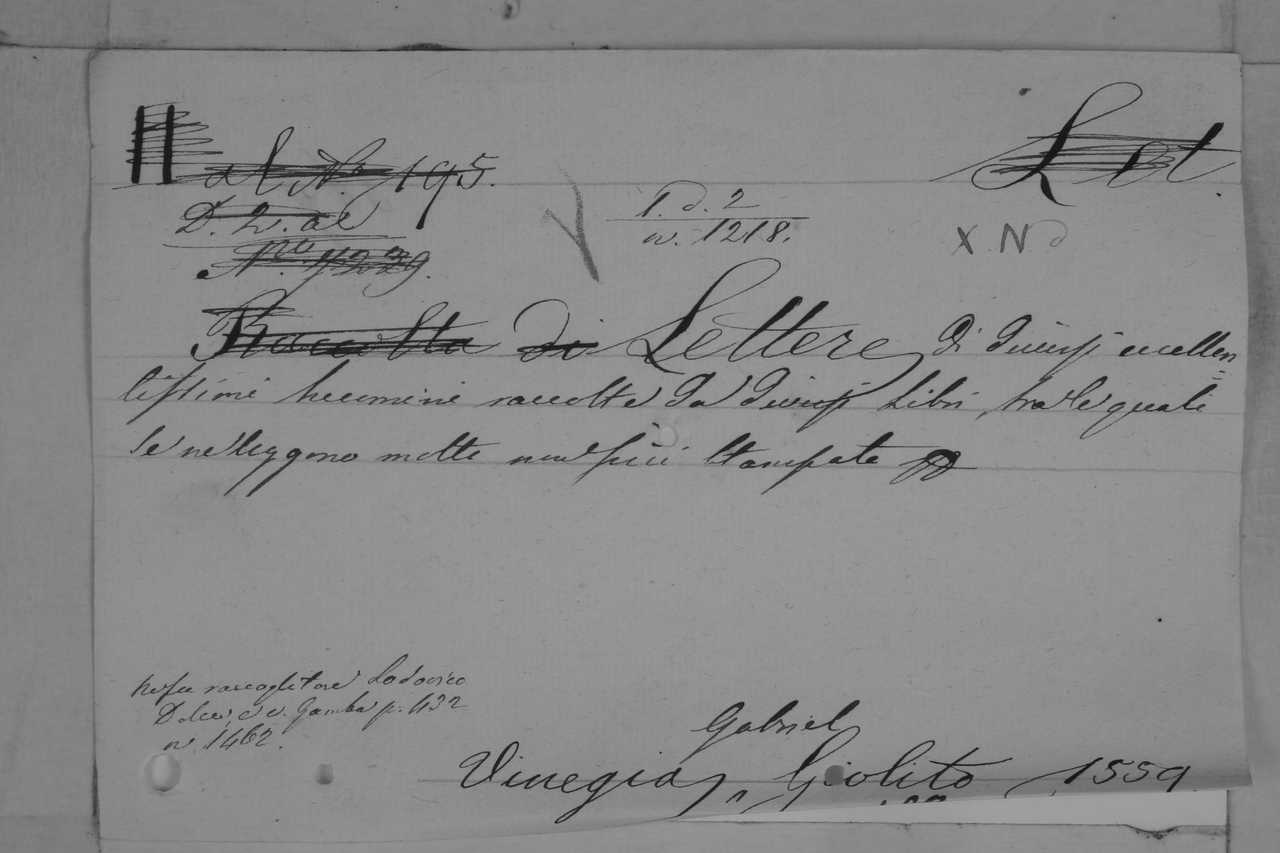 al N.o 195.
Let.
D. 2. al
N.ro 1229.
1. d. 2
n. 1218.
X N d
Raccolta di Lettere di diversi eccellen=
tissimi huomini raccolte da diversi libri, tra le quali
se ne leggono molte non più stampate
Ne fu raccoglitore Lodovico
Dolce, e v. Gamba p. 432
n. 1462.
Gabriel
Vinegia, Giolito, 1559